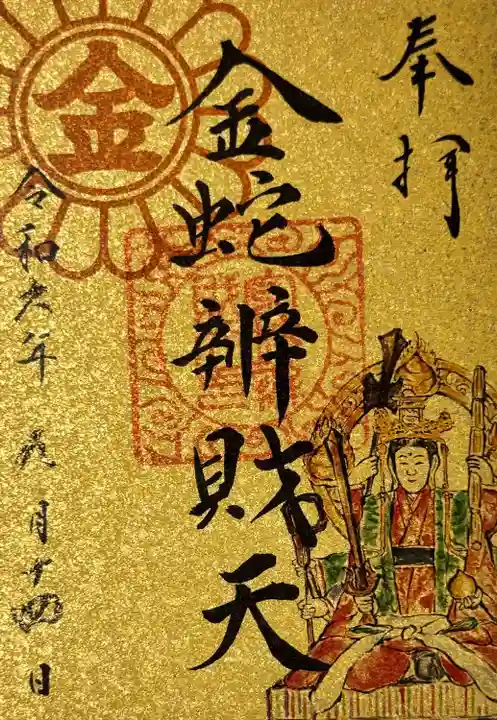 奉拝
金蛇辨財天
金
令和六年
月十四日